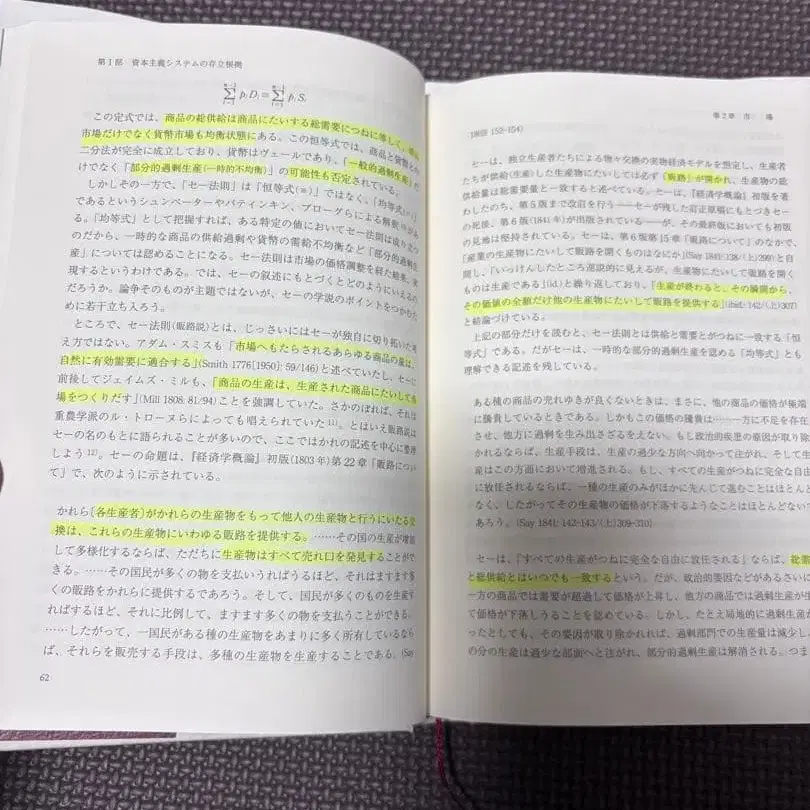 第Ⅰ部 資本主義システムの存立根拠
この定式では、商品の総供給は商品にたいする総需要につねに等しく、
市場だけでなく貨幣市場も均衡状態にある。この恒等式では、商品と貨幣との
二分法が完全に成立しており、貨幣はヴェールであり、「一般的過剰生産」だ
けでなく「部分的過剰生産(一時的不均衡)」の可能性も否定されている。
しかしその一方で、「セー法則」は「恒等式(≡)」ではなく、「均等式(=)」
であるというシュンペーターやパティンキン、ブローグらによる解釈
る。「均等式」として把握すれば、ある特定の値においてセー法則は成り立つ
のだから、一時的な商品の供給過剰や貨幣の需給不均衡など「部分的過剰生
産」については認めることになる。セー法則は市場の価格調整を経た結果、実
現するというわけである。では、セーの叙述にもとづくとどのようにいえるの
だろうか。論争そのものが主題ではないが、セーの学説のポイントをつかむた
めに若干立ち入ろう。
ところで、セー法則(販路説)とは、じっさいにはセーが独自に切り拓いた考
え方ではない。アダム・スミスも「市場へもたらされるあらゆる商品の量は、
自然に有効需要に適合する」(Smith 1776[1950]: 59/146)と述べていたし、セーに
前後してジェイムズ・ミルも、「商品の生産は、生産された商品にたいして市
場をつくりだす」(Mill 1808: 81/94)ことを強調していた。さかのぼれば、それは
重農学派のル・トローヌらによっても唱えられていた11)。とはいえ販路説は
セーの名のもとに語られることが多いので、ここではかれの記述を中心に整理
しよう12)。セーの命題は、『経済学概論』初版(1803年)第22章「販路につい
て」で、次のように示されている。
かれら〔各生産者〕がかれらの生産物をもって他人の生産物と行うにいたる交
換は、これらの生産物にいわゆる販路を提供する。……その国の生産が増加
して多様化するならば、ただちに生産物はすべて売れ口を発見することがで
きる。……その国民が多くの物を支払いうればうるほど、それはますます多
くの販路をかれらに提供するであろう。そして、国民が多くのものを生産す
ればするほど、それに比例して、ますます多くの物を支払うことができる。
……したがって、一国民がある種の生産物をあまりに多く所有しているなら
ば、それらを販売する手段は、多種の生産物を生産することである。(Say
62
第2章 市 場
1803: 152-154)
セーは、独立生産者たちによる物々交換の実物経済モデルを想定し、生産者
たちが供給(生産)した生産物にたいしては必ず「販路」が開かれ、生産物の総
供給量は総需要量と一致すると述べている。セーは、『経済学概論』初版を著
わしたのち、第5版まで改訂を行う――セーが残した訂正原稿にもとづきセー
の死後、第6版(1841年)が出版されている――が、その最終版においても初版
の見地は堅持されている。セーは、第6版第15章「販路について」のなかで、
「産業の生産物にたいして販路を開くものはなにか」(Say 1841: 138/(上)299)と自
問し、「いっけんしたところ逆説的に見えるが、生産物にたいして販路を開く
ものは生産である」(id.)と繰り返しており、「生産が終わると、その瞬間から、
その価値の全額だけ他の生産物にたいして販路を提供する」(ibid: 142/(上)307)
と結論づけている。
上記の部分だけを読むと、セー法則とは供給と需要とがつねに一致する「恒
等式」である。だがセーは、一時的な部分的過剰生産を認める「均等式」とも
理解できる記述を残している。
ある種の商品の売れゆきが良くないときは、まさに、他の商品の価格が極端
に騰貴しているときである。しかもこの価格の騰貴は……一方に不足を存在
させ、他方に過剰を生み出さざるをえない。もし政治的疾患の原因が取り除
かれるならば、生産手段は、生産の過少な方向へ向かって注がれ、そして生
産はこの方面において増進される。もし、すべての生産がつねに完全な自由
に放任されるならば、一種の生産のみがほかに先んじて進むことはほとんど
なく、したがってその生産物の価格が下落するようなことはほとんどないで
あろう。(Say 1841: 142-143/(上)309-310)
セーは、「すべての生産がつねに完全な自由に放任される」ならば、総需
と総供給とはいつでも一致するという。だが、政治的要因などがあるさいに
一方の商品では需要が超過して価格が上昇し、他方の商品では過剰生産が生
て価格が下落しうることを認めている。しかし、たとえ局地的に過剰生産が
ったとしても、その要因が取り除かれれば、過剰部門での生産量は減少し、
の分の生産は過少な部面へと注がれ、部分的過剰生産は解消される。つま